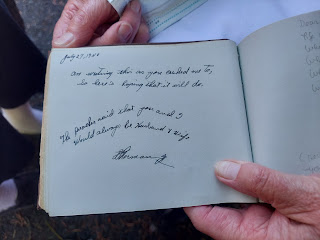 July 27, 19
am writing this as you asked me to,
So here's hoping that it will do.
The preacher said that you and I
Would always be Husband & Wife
Herman
Dear